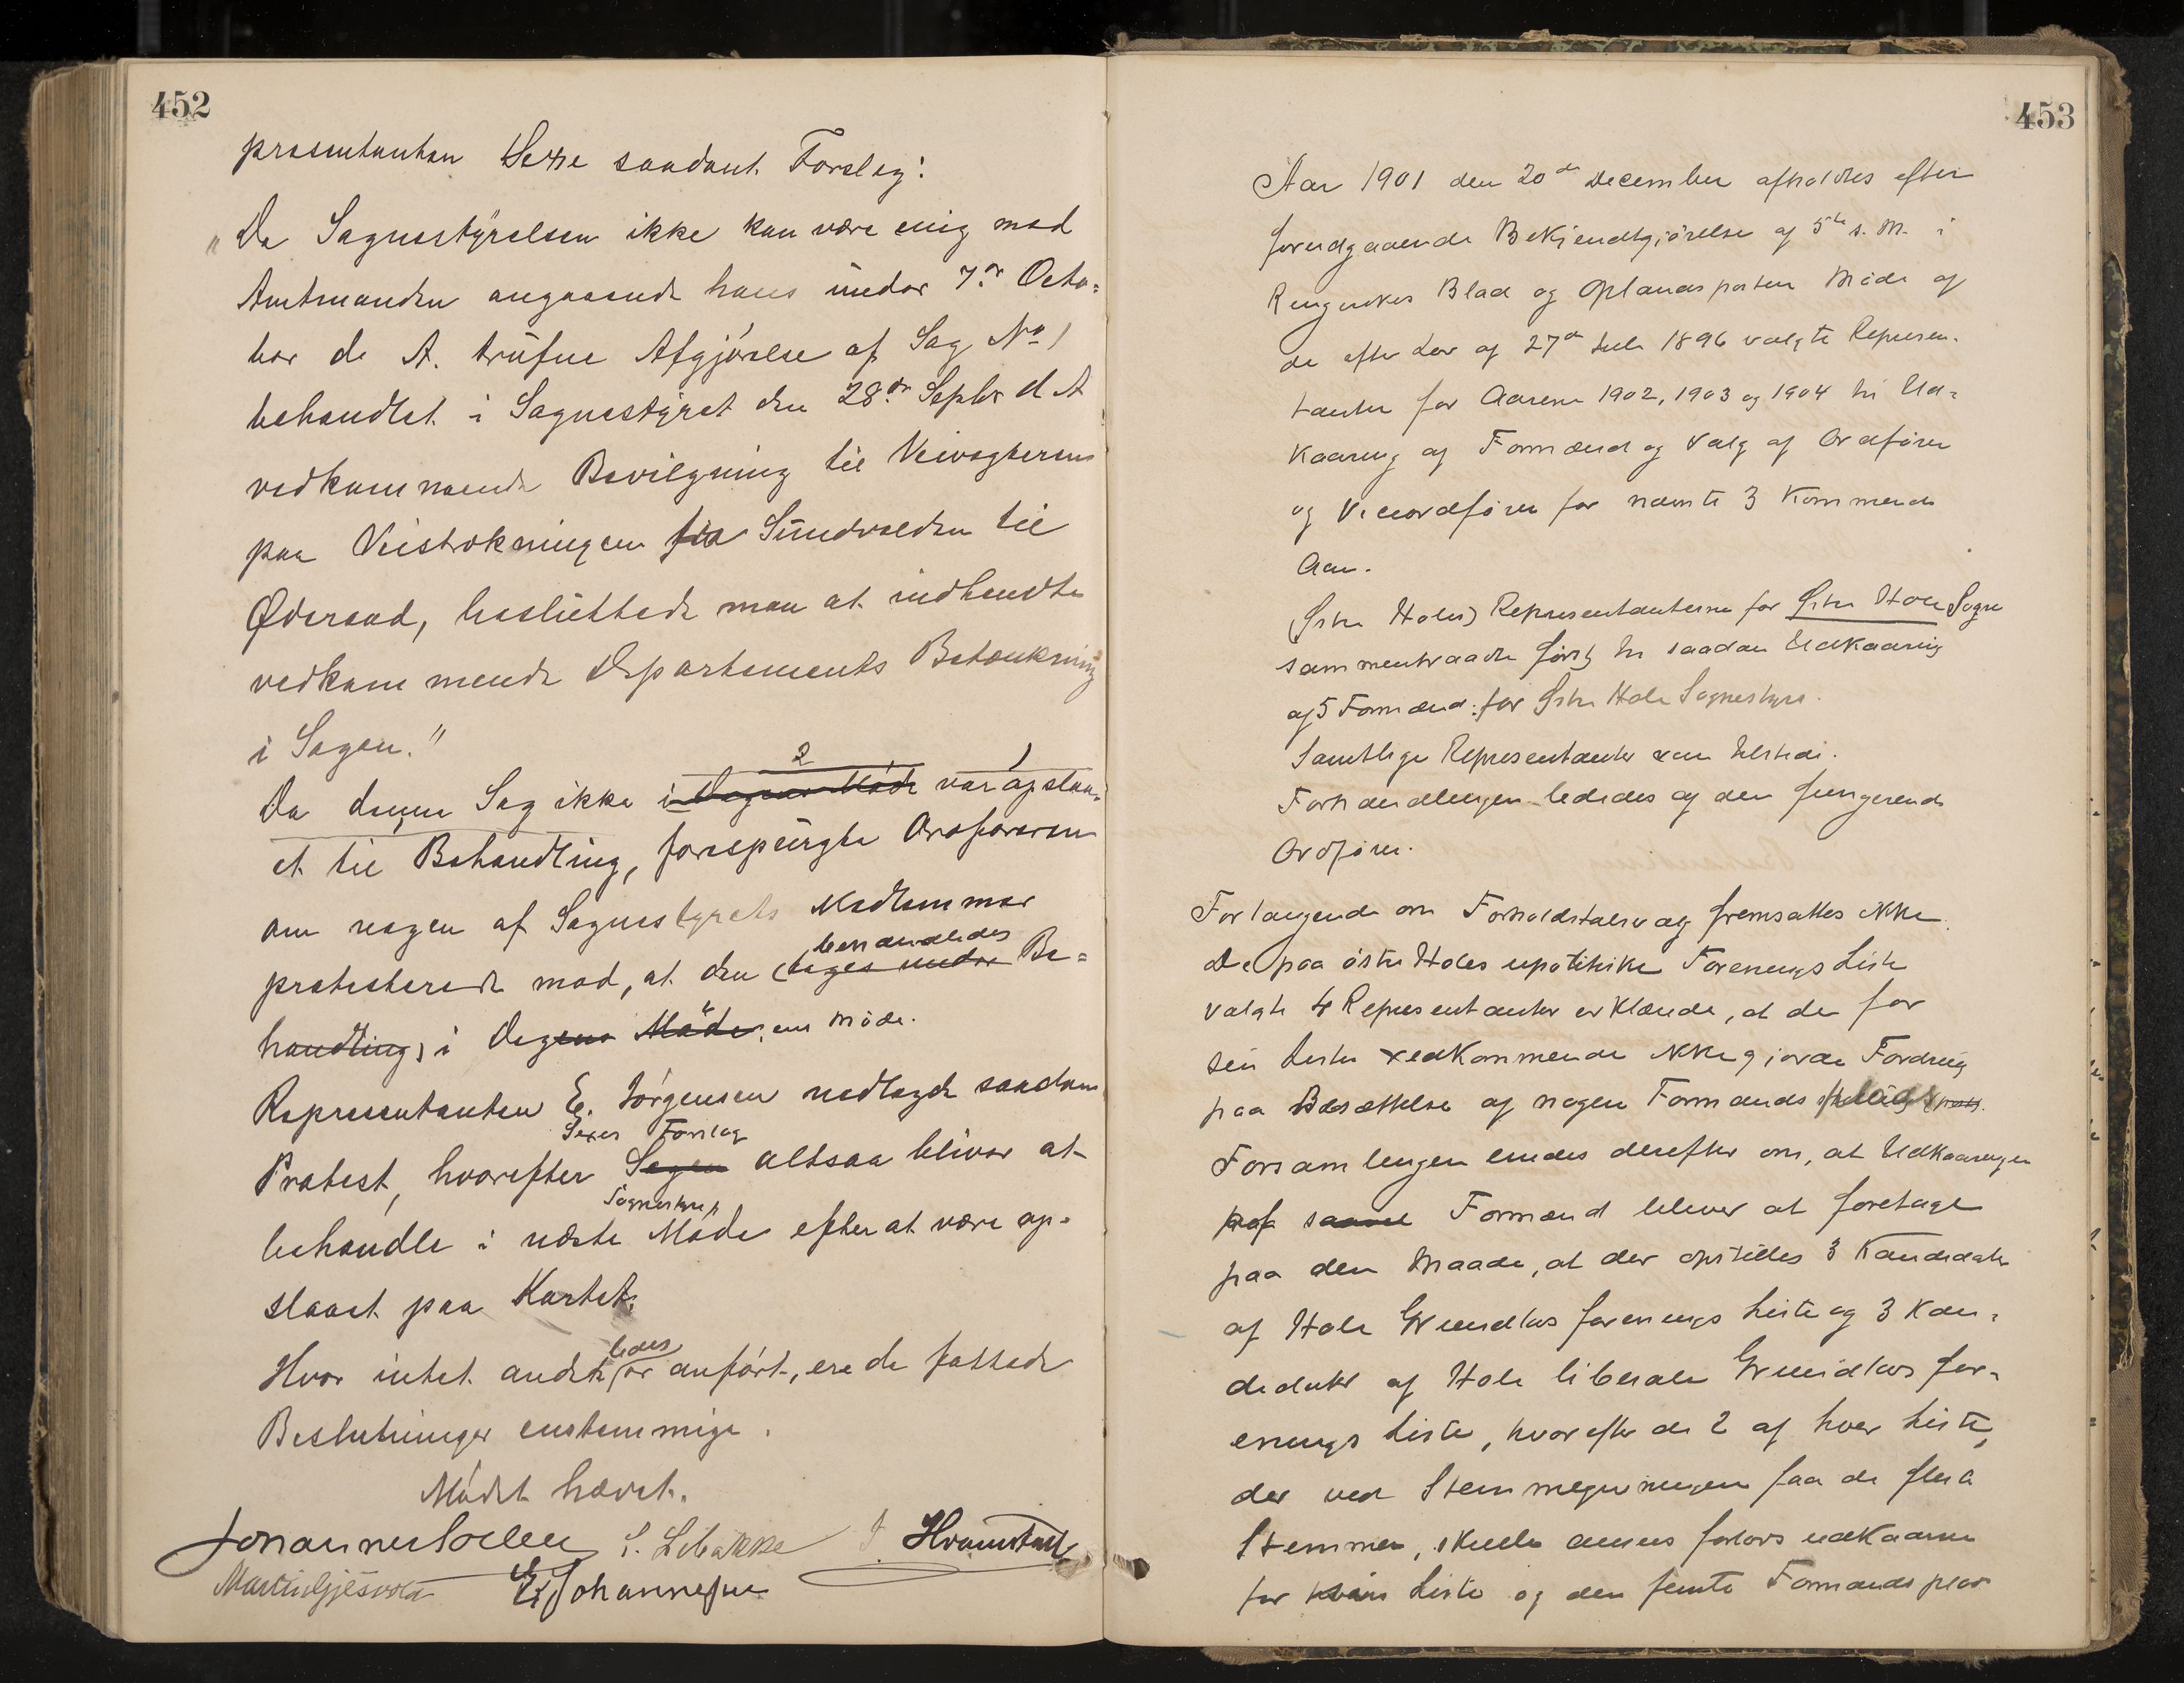 452
præsentanten Sexe saadant Forslag:
„Da Sognestyrelsen ikke kan være enig med
Amtmanden angaaende hans under 7de Octo-
ber d. A. trufne Afgjørelse af Sag No 1
behandlet i Sognestyret den 28de Septbr d. A
vedkommende Bevilgning til Veivogteren
paa Veistrækningen fra Sundvolden til
Øderaad, besluttede man at indhendte
vedkommende Departements Betænkning
i Sagen."
2 1
Da denne Sag ikke i Dagens Møde var opslaa-
et til Behandling, forespurgte Ordføreren
om nogen af Sognestyrets Medlemmer
behandledes
protesterede mod, at den (toges under Be-
handling) i Dagens Møde. em Møde.
Repræsentanten E. Jørgensen nedlagde saadan
Sexes Forslag
Protest, hvorefter Sagen altsaa bliver at
Sognestyre
behandle i næste Møde efter at være op-
slaaet paa Kartet.
ledes
Hvor intet andet er anført, ere de fattede
Beslutninger enstemmige.
Mødet hævet.
Johannes Sollen S. Libakke J. Hvamstad
Martin Gjesvold E. Johannesen
453
Aar 1901 den 20de December afholdtes efter
forudgaaende Bekjendtgjørelse af 5te s. M. i
Ringerikes Blad og Oplandsposten Møde af
de efter Lov af 27de Juli 1896 valgte Represen-
tanter for Aarene 1902, 1903 og 1904 til Ud-
kaaring af Formænd og Valg af Ordfører
og Viceordfører for nævnte 3 Kommende
Aar.
(Østre Holes) Representanterne for Østre Hole Sogn
sammentraadte først til saadan Udkaaring
af 5 Formænd: for Østre Hole Sognestyre.
Samtlige Representanter var tilstede.
Forhandlingen lededes af den fungerende
Ordfører.
Forlangende om Forholdstalsvalg fremsattes ikke.
De paa østre Holes upolitiske Forenings Liste
valgte 4 Representanter erklærede, at de for
sin Listes vedkommende ikke gjorde Fordring
paa Besættelse af nogen Formandsplads
Forsamlingen enedes derefter om, at Udkaaringen
af saavel Formænd bliver at foretage
paa den Maade, at der opstilles 3 Kandidater
af Hole Grundlovsforenings Liste og 3 Kan-
didater af Hole liberale Grundlovsfor-
enings Liste, hvorefter de 2 af hver Liste,
der ved Stemmegivningen faa de fleste
Stemmer, skulle ansees forlovs udkaarne
for hvers Liste og den femte Formandsplads